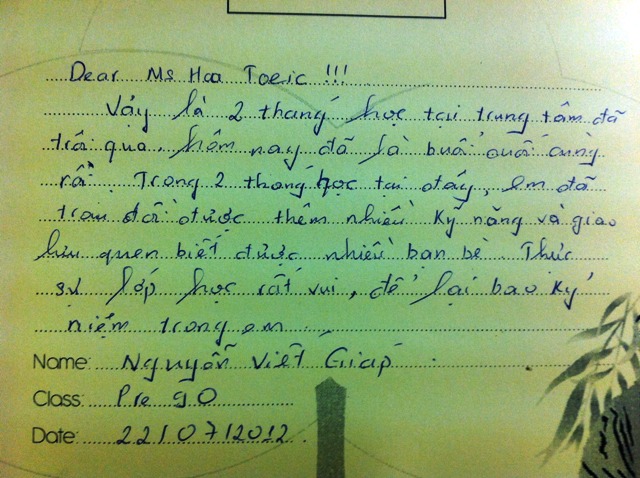 Dear Ms Hoa Toeic !!!
Vậy là 2 tháng học tại trung tâm đã
trôi qua. hôm nay đã là buổi cuối cùng
rồi. Trong 2 tháng học tại đây, em đã
trau dồi được thêm nhiều kỹ năng và giao
lưu quen biết được nhiều bạn bè. Thực
sự lớp học rất vui, để lại bao kỷ
niệm trong em.
Name: Nguyễn Viết Giáp
Class: Pre 90
Date: 22/07/2012.